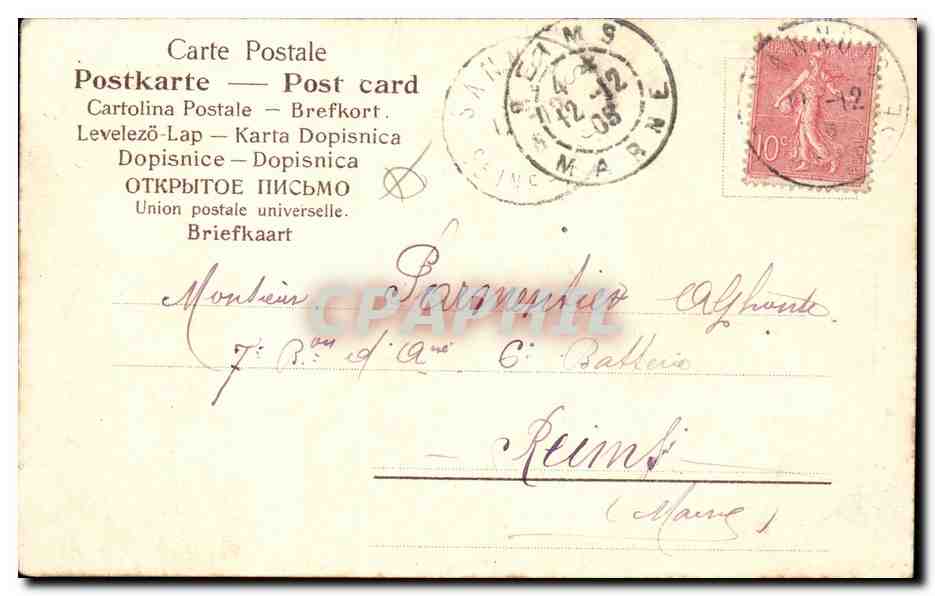 Carte Postale
Postkarte — Post card
Cartolina Postale – Brefkort.
Levelező-Lap – Karta Dopisnica
Dopisnice – Dopisnica
ОТКРЫТОЕ ПИСЬМО
Union postale universelle.
Briefkaart
REIMS
12 -12
MARNE
10c
-12
CPAPHIL
Monsieur Parmentier Alphonse
7e Bon d'Arie 6e Batterie
Reims
(Marne)